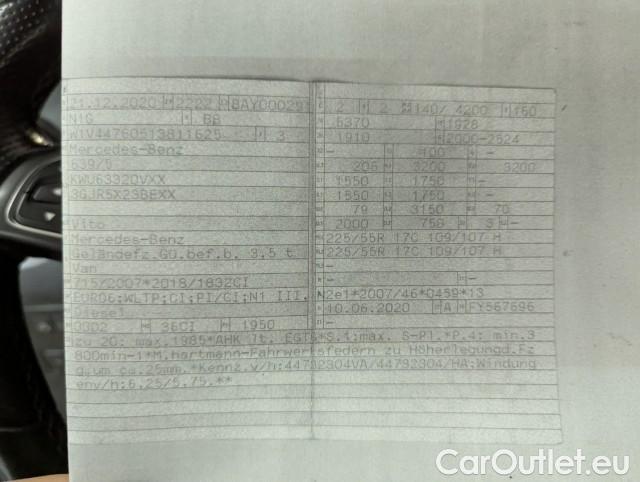 21.12.2020 2222 8AY000291
N1G BB
W1V44760513811625 3
Mercedes-Benz
639/5
KWU6332QVXX
3GJR5X23BEXX
Vito
Mercedes-Benz
Geländefz.GÜ.bef.b. 3,5 t
Van
715/2007*2018/1832CI
EURO6;WLTP;CI;PI/CI;N1 III,
Diesel
0002 36CI 1950
2 2 140/ 4200 160
5370 1928
1910 2000-2524
- 100 -
- 205 3200 3200
1550 1750 -
1550 1750 -
79 3150 70
2000 750 3 -
225/55R 17C 109/107 H
225/55R 17C 109/107 H
-
- -
2e1*2007/46*0459*13
10.06.2020 A FY567696
-
zu 20: max.1985*AHK lt. EGTG*S.1:max. S-Pl.*P.4: min.3
800min-1*M.hartmann-Fahrwerksfedern zu Höherlegungd.Fz
g.um ca.25mm.*Kennz.v/h:44792304VA/44792304/HA;Windung
env/h:6,25/5,75.**
CarOutlet.eu